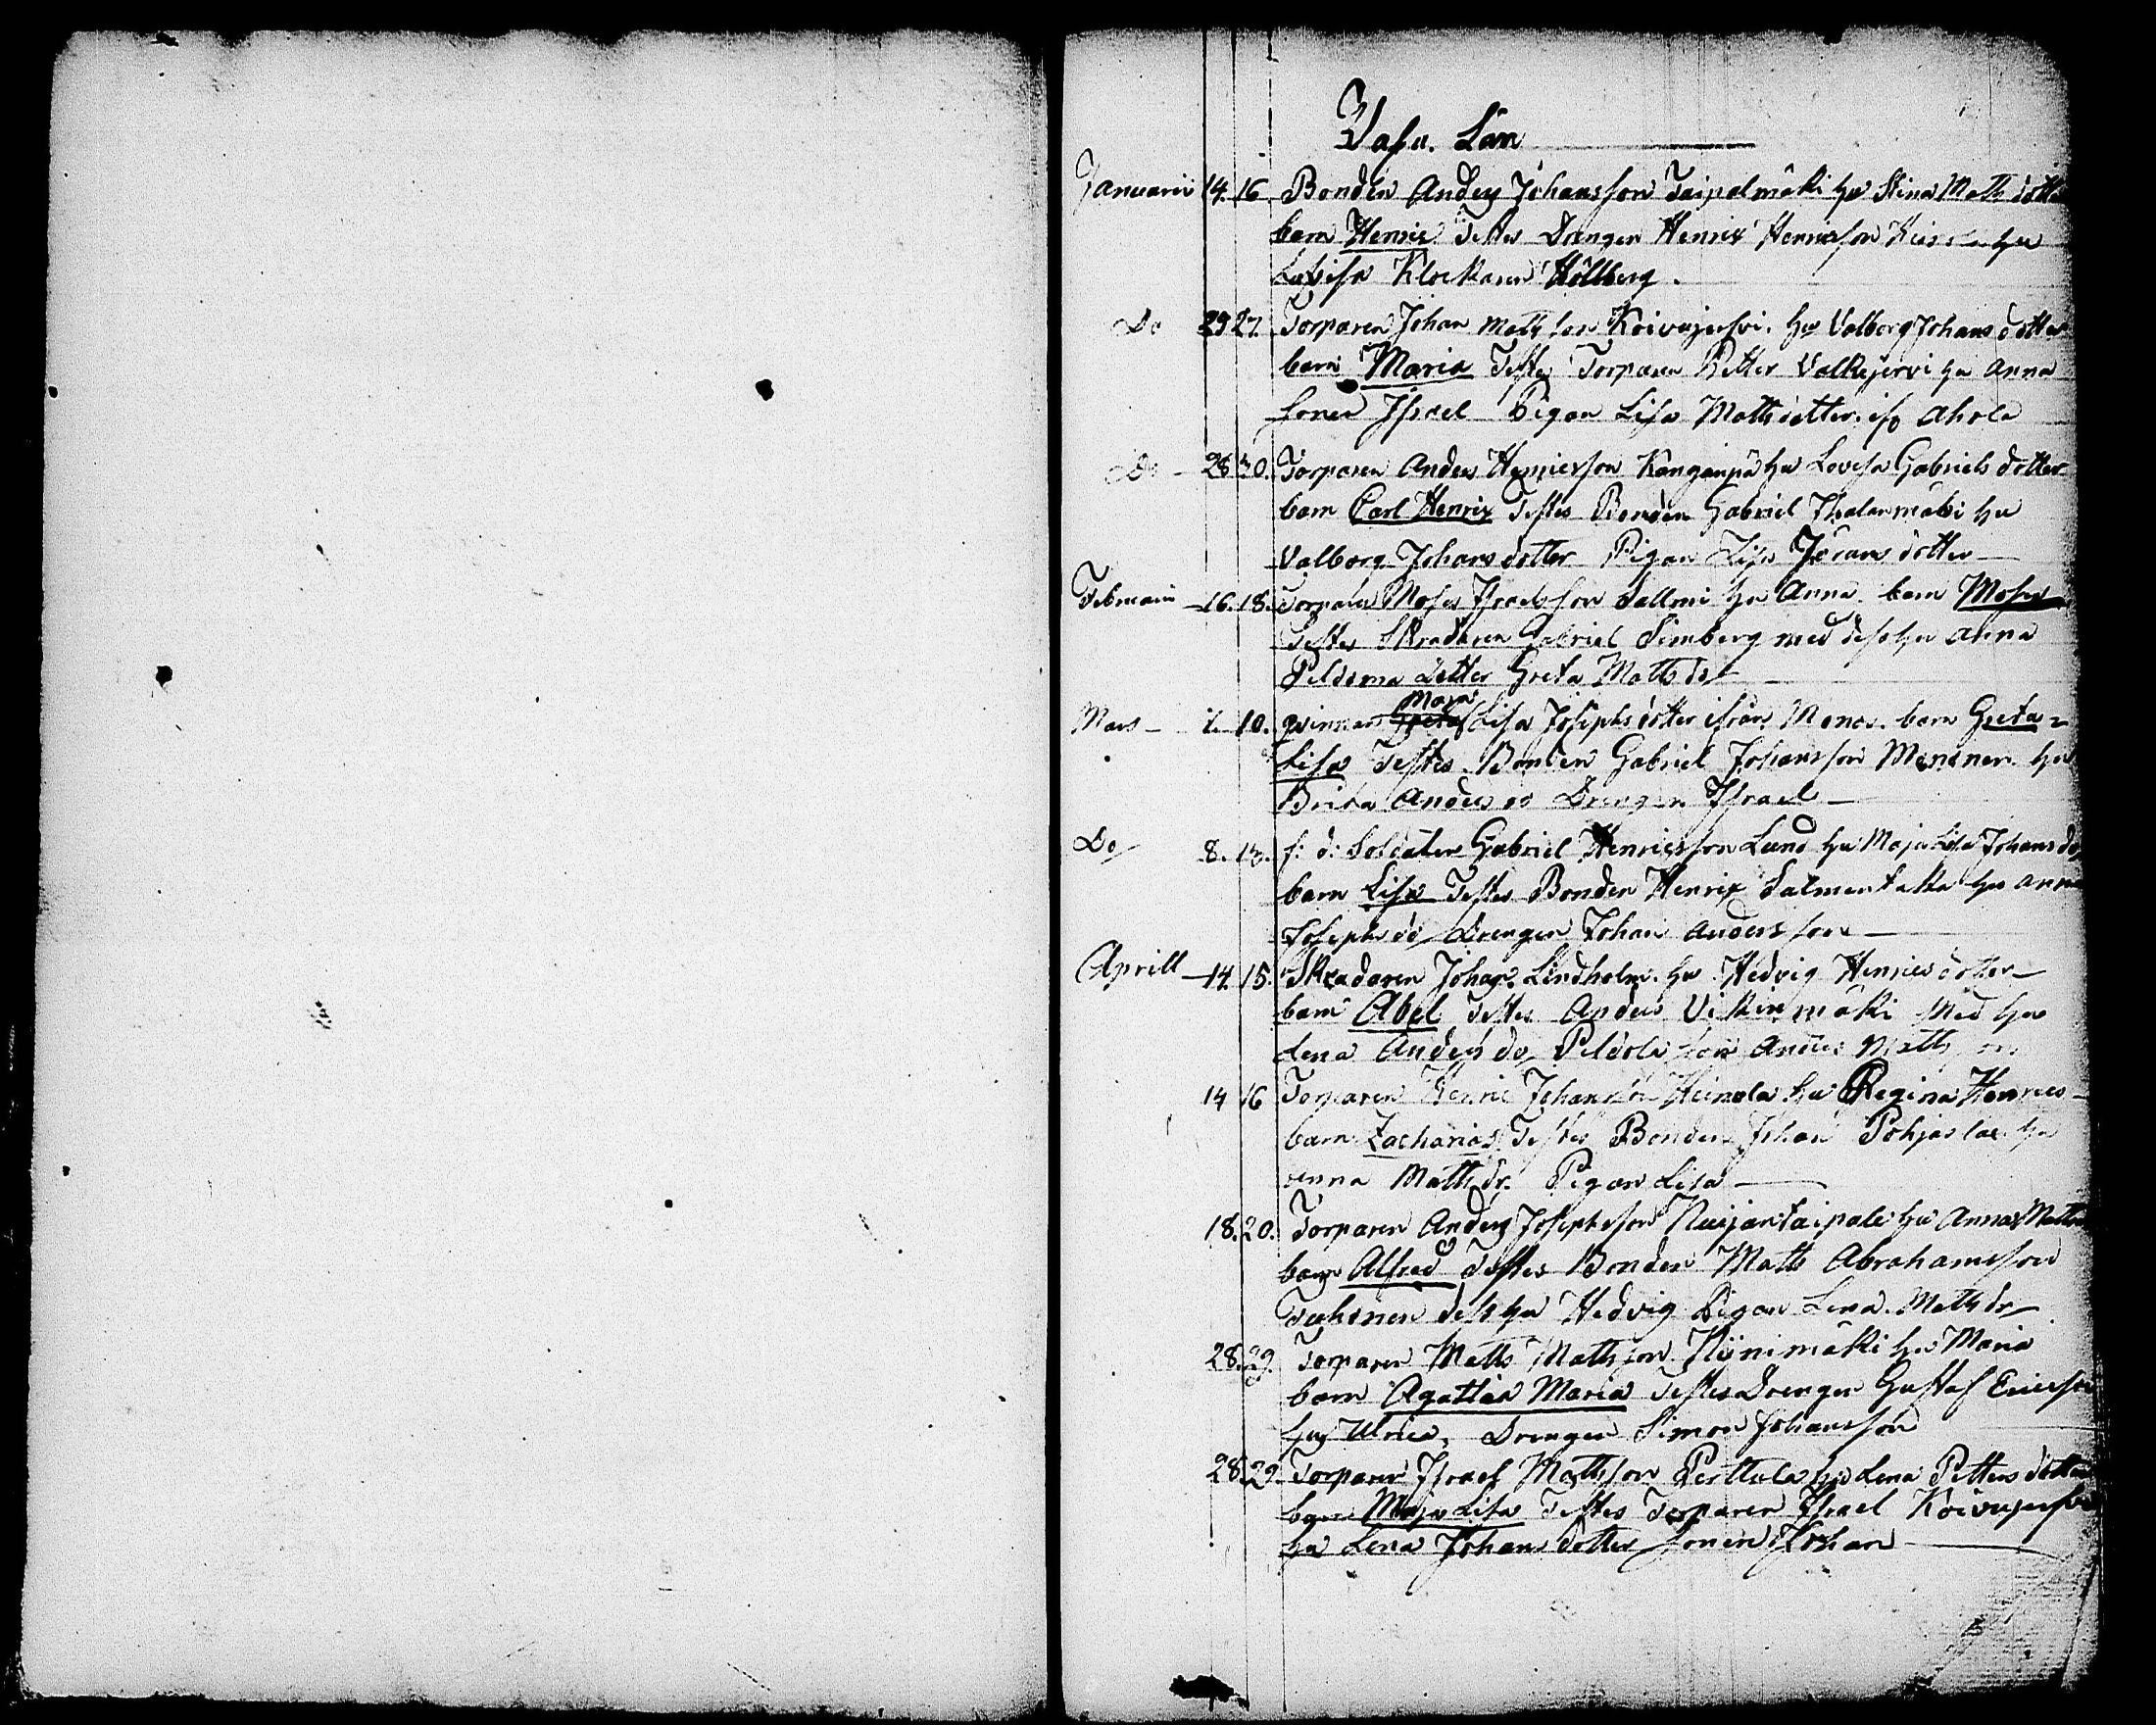 Vasa. Län
Januarii 14. 16. Bonden Anders Johansson Taipalmäki hu Stina Matts dotter
barn Henric Testes Drengen Henrix Henricsson hu
Lovisa Klockaren Hållberg.
Do 27. Torparen Johan Matts son Koivujerfvi. hu Valborg Johans dotter
barn Maria Testes Torparen Petter Valkejervi hu Anna
sonen Israel Pigan Lisa Matts dotter ifr Ahola
Do 28 30. Torparen Anders Henricsson Kanganpä hu Lovisa Gabriels dotter
barn Carl Henrix Testes Bonden Gabriel hu
Valborg Johans dotter Pigan Lisa Jörans dotter
Februarii 16. 18. Torparen Moses Israelsson Salloni hu Anna. barn Moses
Testes Skradaren Gabriel Simberg med dess hu Anna
Peldoma dotter Greta Matts dr
Mars 7. 10. qvinnan Greta Maja Lisa Josephs dotter ifrån barn Greta =
Lisa Testes Bonden Gabriel Johansson Menenen hu
Brita Anders do Drengen Israel
Do 8. 13. f: d: Soldaten Gabriel Henricsson Lund hu Maja Lisa Johans do
barn Lisa Testes Bonden Henrix Salmentaka hu Anna
Josephs do Drengen Johan Andersson
Aprill 14. 15. Skradaren Johan Lindholm. hu Hedvig Henrics dotter
barn Abel Testes Anders mäki Med hu
Lena Anders do Peldola son Anders Matts son
14 16 Torparen Henric Johansson Heinola hu Regina Henrics
barn Zacharias Testes Bonden Johan Pohjas hu
Anna Matts dr. Pigan Lisa
18. 20. Torparen Anders Josephsson Nuijantaipale hu Anna Matts
barn Alfred Testes Bonden Matts Abrahamsson
dess hu Hedvig Pigan Lena Matts dr
28. 29. Torparen Matts Mattsson Niinimäki hu Maria
barn Agatha Maria Testes Drengen Gustaf Ericsson
hu Ulrica, Drengen Simon Johansson
28. 29. Torparen Israel Mattsson Perttula hu Lena Petters dotter
barn Maja Lisa Testes Torparen Israel Koivujerfvi
hu Lena Johans dotter sonen Johan